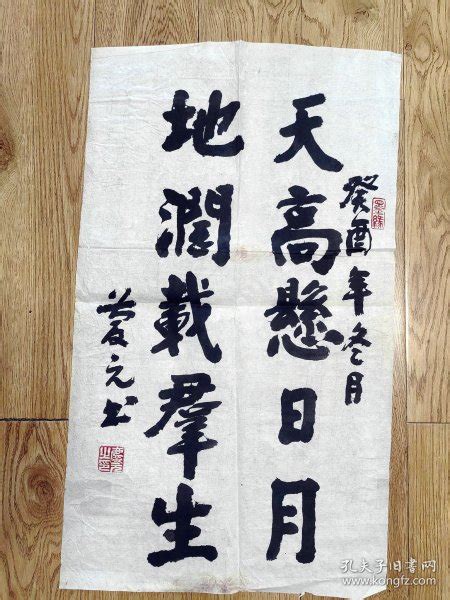 癸酉年冬月
天高懸日月
地潤載羣生
元书
孔夫子旧书网
www.kongfz.com